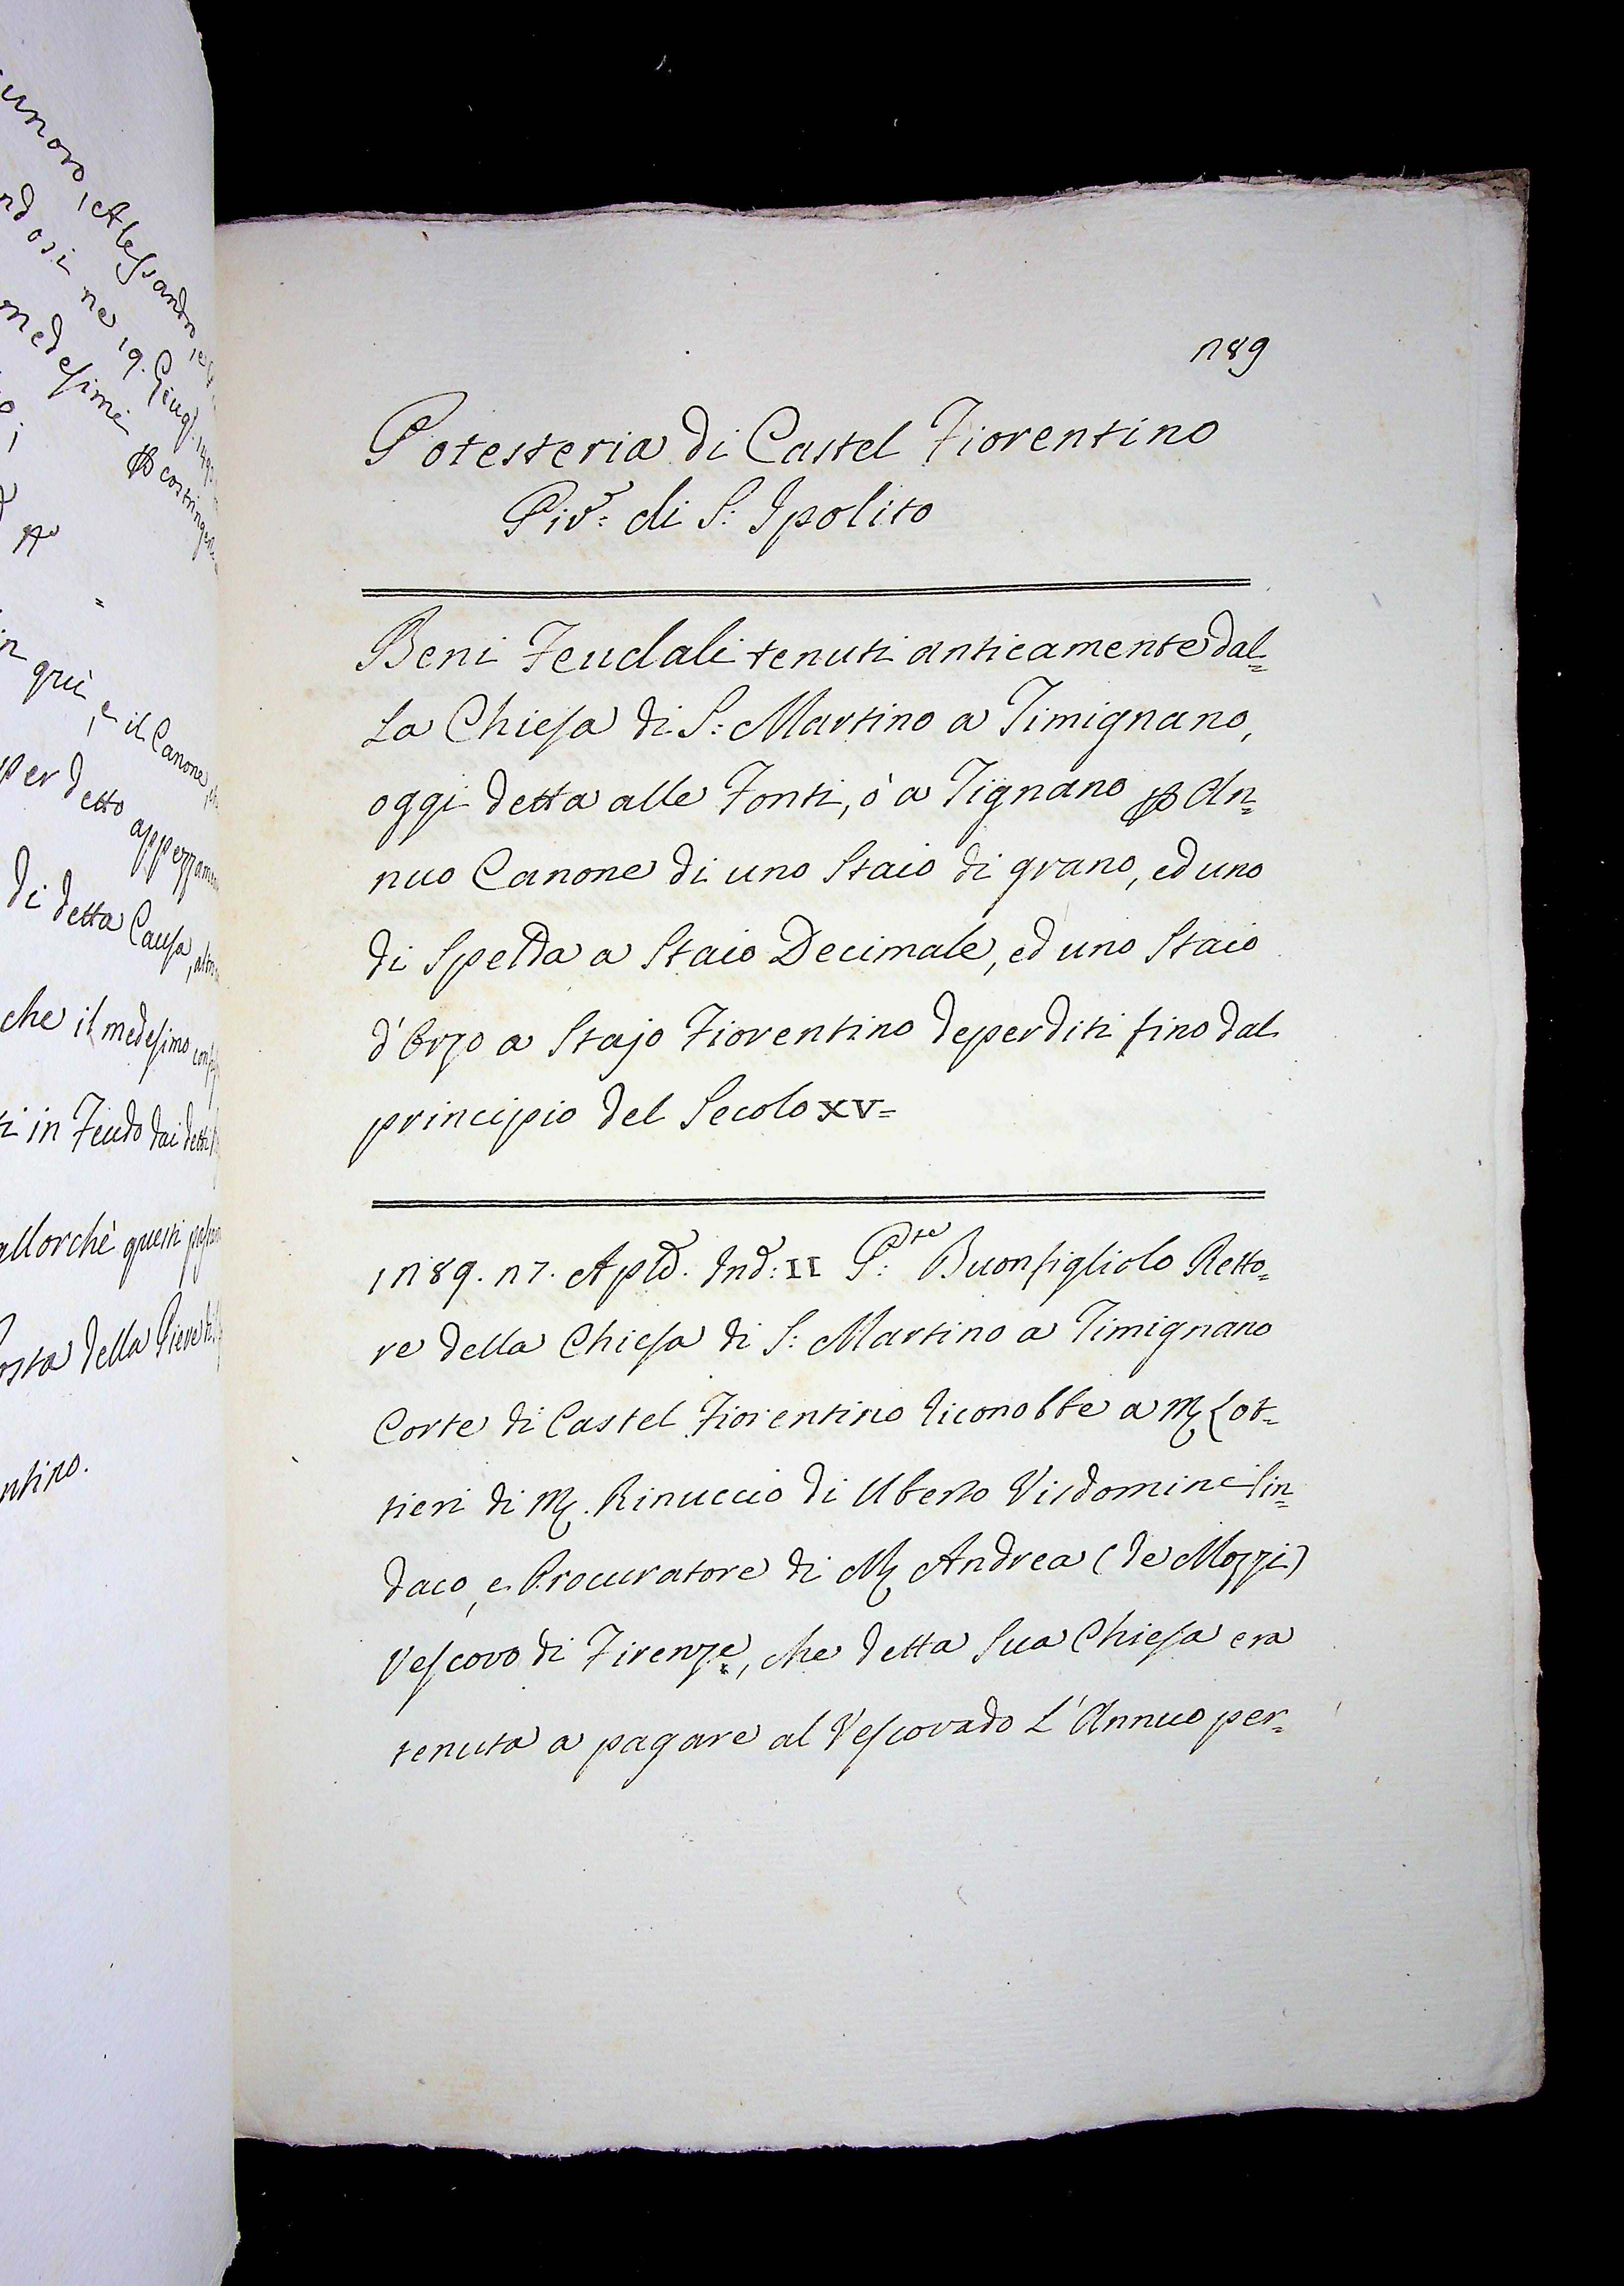 unoro, Alessandro, e
ndosi ne 19. Giug.
medesimi costringere
in
qui, e il Canone,
per detto appezzamen
di detta Causa, altri
che il medesimo conf
ti in Feudo dai detti
allorchè questi
osta della Pieve di
ntino.
289
Potesteria di Castel Fiorentino
Piv.e di S: Ipolito
Beni Feudali tenuti anticamente dal=
la Chiesa di S: Martino a Timignano,
oggi detta alle Fonti, ò a Tignano ꝑ An=
nuo Canone di uno Staio di grano, ed uno
di Spelda a Staio Decimale, ed uno Staio
d'Orzo a Stajo Fiorentino deperditi fino dal
principio del Secolo XV=
1289. 27. Aple. Ind: II P:te Buonfigliolo Retto=
re della Chiesa di S: Martino a Timignano
Corte di Castel Fiorentino riconobbe a M. Lot=
tieri di M. Rinuccio di Uberto Visdomini Sin=
daco, e Procuratore di M. Andrea (de Mozzi)
Vescovo di Firenze, che detta Sua Chiesa era
tenuta a pagare al Vescovado L'Annuo per=